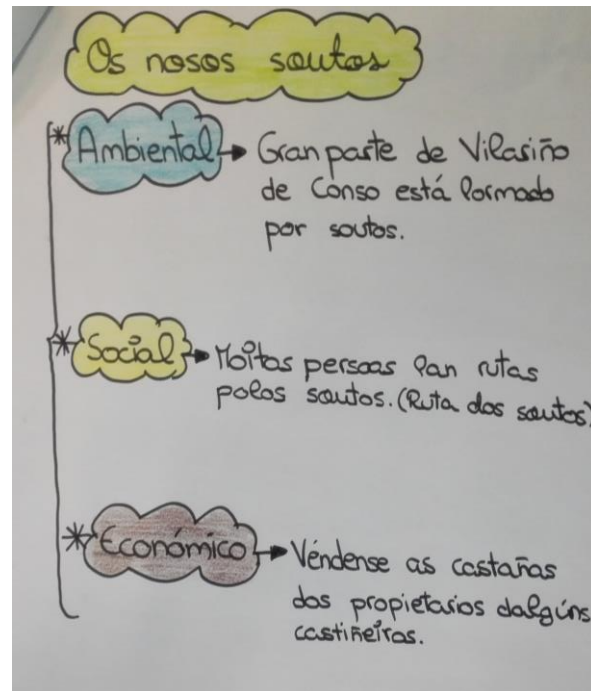 Os nosos soutos
* Ambiental → Gran parte de Vilariño
de Conso está formado
por soutos.
* Social → Moitas persoas fan rutas
polos soutos. (Ruta dos soutos)
* Económico → Véndense as castañas
dos propietarios dalgúns
castiñeiros.